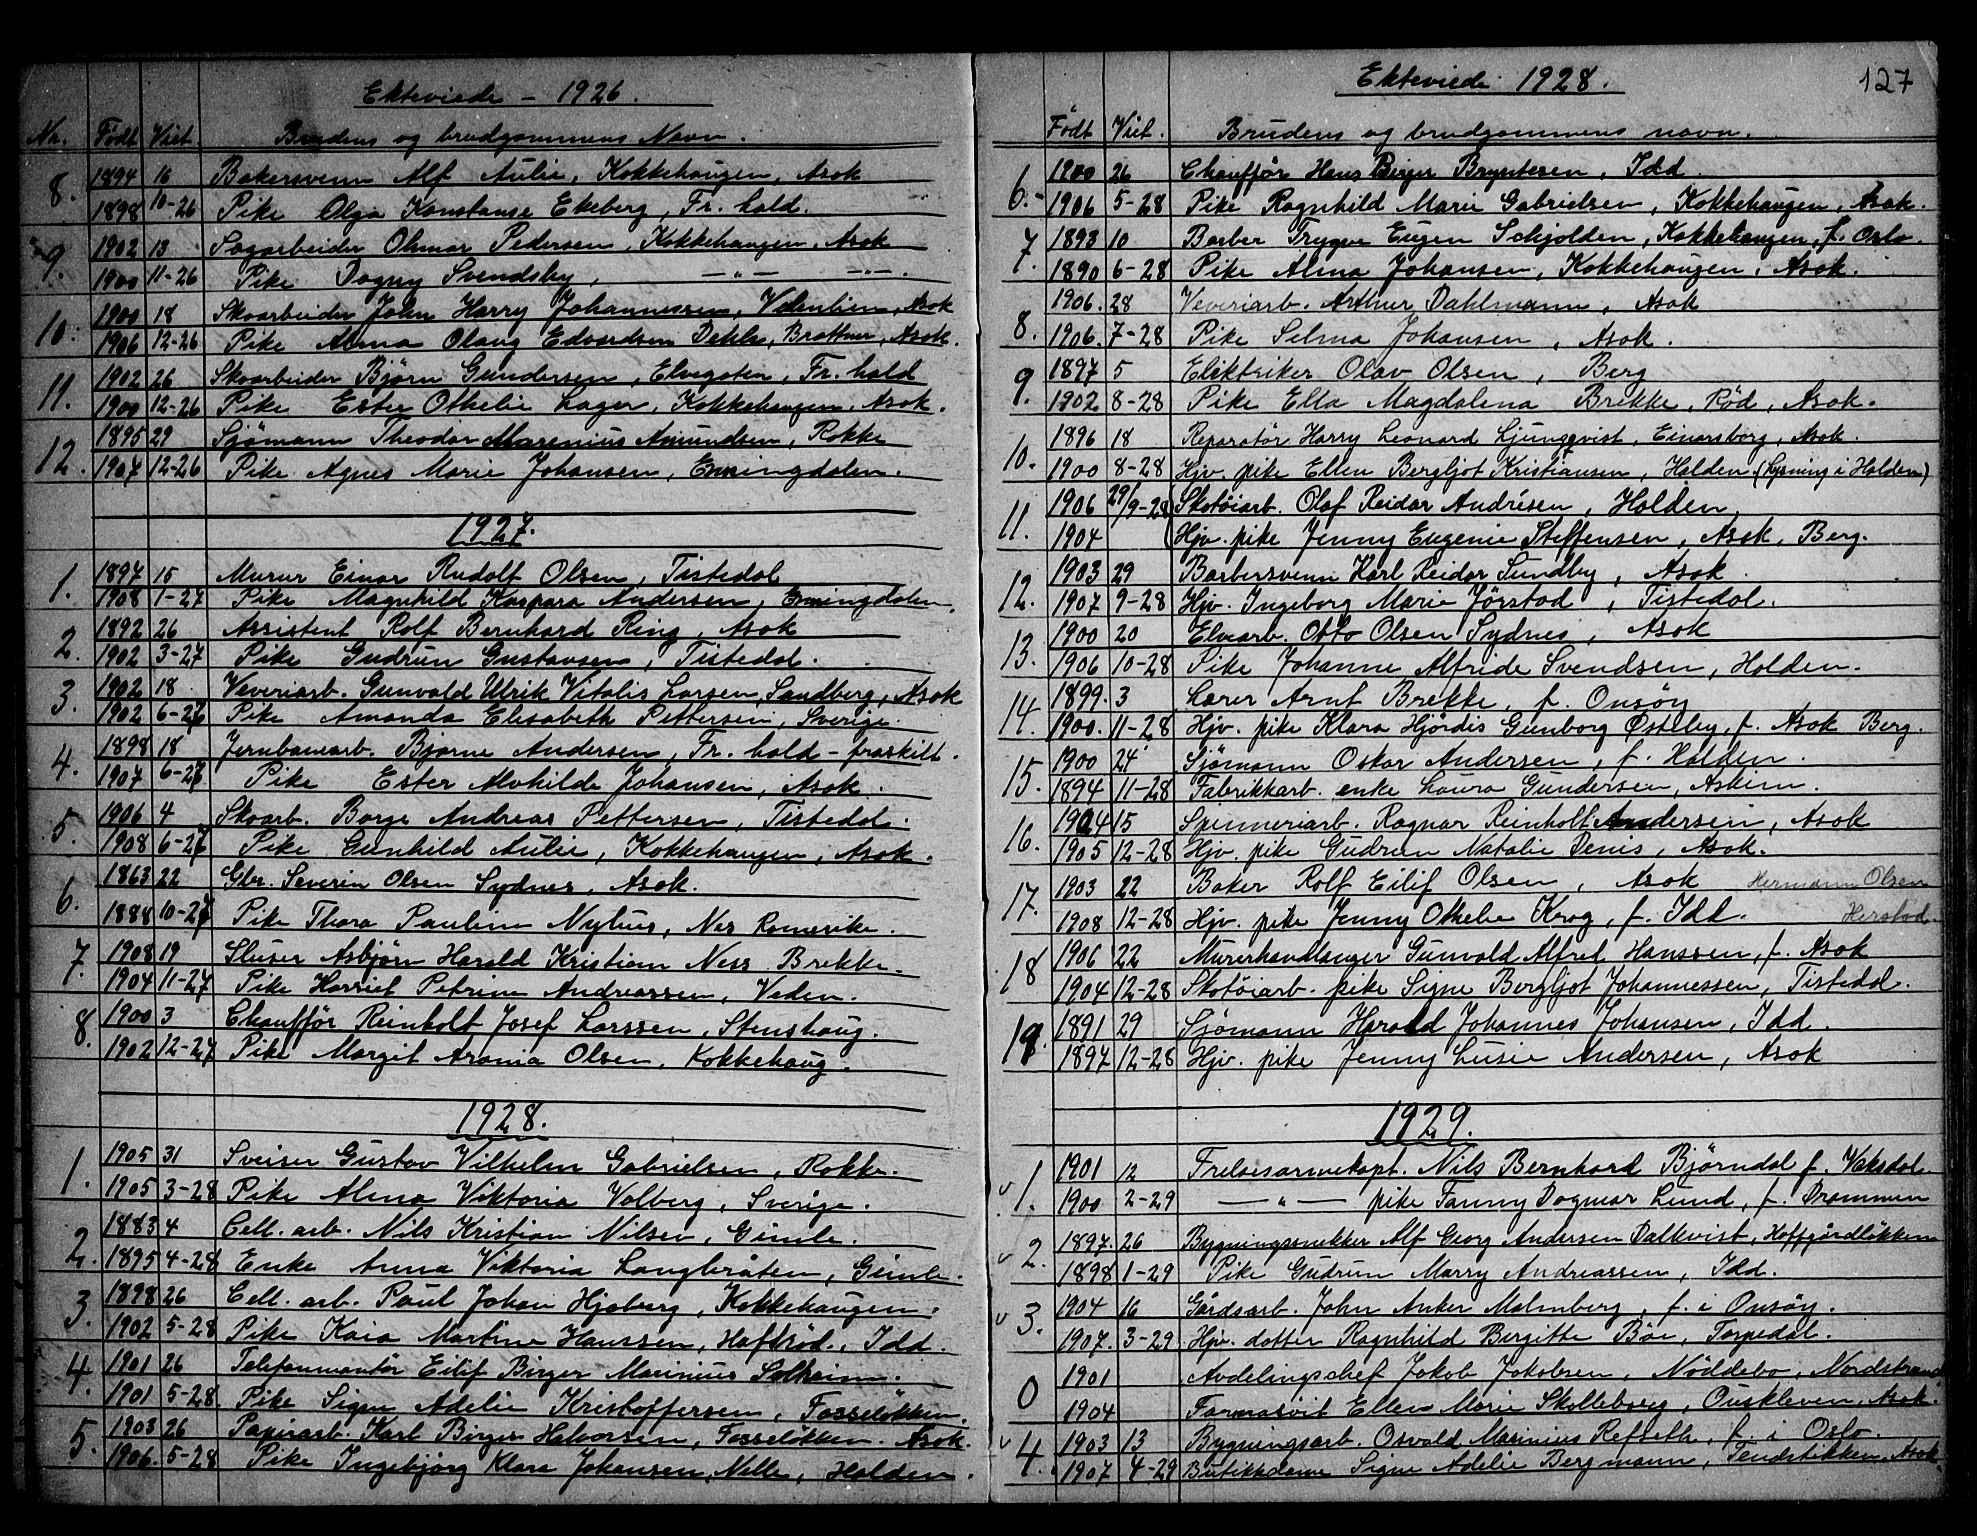 Ekteviede - 1926.
No. Født Viet. Brudens og brudgommens Navn.
8. 1894 16 Bakersvenn Alf Aulie, Kokkehaugen, Asak
1898 10-26 Pike Olga Konstanse Ekeberg, Fr. hald.
9. 1902 13 Sagarbeider Olmar Pedersen, Kokkehaugen, Asak
1900 11-26 Pike Dagny Svendsby, —"— —"—.
10. 1900 18 Skoarbeider John Harry Johannessen, Vedenlien, Asak
1906 12-26 Pike Alma Olaug Edvardsen Dehle, Brattner, Asak.
11. 1902 26 Skoarbeider Bjørn Gundersen, Elvegaten, Fr. hald
1900 12-26 Pike Ester Othelie Lager, Kokkehaugen, Asak.
12. 1895 29 Sjømann Theodor Marenius Amundsen, Rokke
1907 12-26 Pike Agnes Marie Johansen, Enningdalen.
1927.
1. 1897 15 Murer Einar Rudolf Olsen, Tistedal
1908 1-27 Pike Magnhild Kaspara Andersen, Enningdalen.
2. 1892 26 Assistent Rolf Bernhard Ring, Asak
1902 3-27 Pike Gudrun Gustavsen, Tistedal.
3. 1902 18 Veveriarb. Gunvald Ulrik Vitalis Larsen, Sandberg, Asak
1902 6-27 Pike Amanda Elisabeth Pettersen, Sverige.
4. 1898 18 Jernbanearb. Bjarne Andersen, Fr. hald - fraskilt.
1907 6-27 Pike Ester Alvhilde Johansen, Asak.
5. 1906 4 Skoarb. Borge Andreas Pettersen, Tistedal.
1908 6-27 Pike Gunhild Aulie, Kokkehaugen, Asak.
6. 1863 22 Gbr. Severin Olsen Sydnes, Asak.
1884 10-27 Pike Thora Pauline Nyhus, Nes Romerike.
7. 1908 19 Sluser Asbjørn Harald Kristian Ness Brekke.
1904 11-27 Pike Harriet Petrine Andreassen, Veden.
8. 1900 3 Chauffør Reinholt Josef Larssen, Stenshaug.
1902 12-27 Pike Margit Arania Olsen, Kokkehaug.
1928.
1. 1905 31 Sveiser Gustav Vilhelm Gabrielsen, Rokke.
1905 3-28 Pike Alma Viktoria Valberg, Sverige.
2. 1883 4 Cell. arb. Nils Kristian Nilsen, Gimle.
1895 4-28 Enke Anna Viktoria Langbråten, Gimle.
3. 1898 26 Cell. arb. Paul Johan Hjøberg, Kokkehaugen.
1902 5-28 Pike Kaia Martine Hanssen, Haftrød, Idd.
4. 1901 26 Telefonmontør Eilif Birger Marinius Solheim.
1901 5-28. Pike Signe Adelie Kristoffersen, Fosseløkken.
5. 1903 26 Papirarb. Karl Birger Halvorsen, Fosseløkken. Asak.
1906. 5-28 Pike Ingebjørg Klara Johansen, Nelle, Halden.
Ekteviede 1928. 127
Født Viet. Brudens og brudgommens navn.
6. 1900 26 Chauffør Hans Birger Bryntesen, Idd.
1906 5-28 Pike Ragnhild Marie Gabrielsen, Kokkehaugen, Asak.
7. 1893 10 Barber Trygve Eugen Schjolden, Kokkehaugen, f. Oslo.
1890 6-28 Pike Alma Johansen, Kokkehaugen, Asak.
8. 1906. 28 Veveriarb. Arthur Dahlmann, Asak
1906. 7-28 Pike Selma Johansen, Asak.
9. 1897 5 Elektriker Olav Olsen, Berg
1902 8-28 Pike Ella Magdalena Brekke, Rød, Asak.
10. 1896 18 Reparatør Harry Leonard Ljungqvist, Einarsborg, Asak.
1900 8-28 Hjv. pike Ellen Bergljot Kristiansen, Halden (Lysning i Halden)
11. 1906 29/9-28 Skotøiarb. Olaf Reidar Andrésen, Halden,
1904 Hjv. pike Jenny Eugenie Steffensen, Asak, Berg.
12. 1903 29 Barbersvenn Karl Reidar Sundby, Asak
1907 9-28 Hjv. Ingeborg Marie Jørstad, Tistedal.
13. 1900 20 Elvearb. Otto Olsen Sydnes, Asak
1906 10-28 Pike Johanne Alfride Svendsen, Halden.
14. 1899. 3 Lærer Arnt Brekke, f. Onsøy
1900. 11-28 Hjv. pike Klara Hjørdis Gunborg Østeby, f. Asak Berg.
15. 1900 24 Sjømann Oskar Andersen, f. Halden.
1894 11-28 Fabrikkarb. enke Laura Gundersen, Askim.
16. 1904 15 Spinneriarb. Ragnar Reinholt Andersen, Asak
1905 12-28 Hjv. pike Gudrun Natalie Denis, Asak.
17. 1903 22 Baker Rolf Eilif Olsen, Asak Hermann Olsen
1908 12-28 Hjv. pike Jenny Othelie Krog, f. Idd. Herstad.
18 1906 22 Murerhandlanger Gunvald Alfred Hanssen, f. Asak
1904 12-28 Skotøiarb. pike Signe Bergljot Johannessen, Tistedal.
19. 1891 29 Sjømann Harald Johannes Johansen, Idd.
1897 12-28 Hjv. pike Jenny Lusie Andersen, Asak
1929.
v 1. 1901 12 Frelsesarmekapt. Nils Bernhard Bjørndal f. Vaksdal
1900 2-29 —"— pike Fanny Dagmar Lund, f. Drammen
v 2. 1897. 26 Bygningssnekker Alf Georg Andersen Dalkvist, Hoffgårdløkken
1898 1-29 Pike Gudrun Marry Andreassen, Idd.
v 3. 1904 16 Gårdsarb. John Anker Malmberg, f. i Onsøy.
1907. 3-29 Hjv. datter Ragnhild Bergitte Bøe, Torpedal.
0 1901 Avdelingschef Jakob Jakobsen, Nøddebo, Nordstrand
1904 Ellen Marie Skolleborg, Ouskleven, Asak.
v 4. 1903 13 Bygningsarb. Osvald Marinius Refseth, f. i Oslo.
1907 4-29 Butikkdame Signe Adelie Bergmann, Tendstikken, Asak.